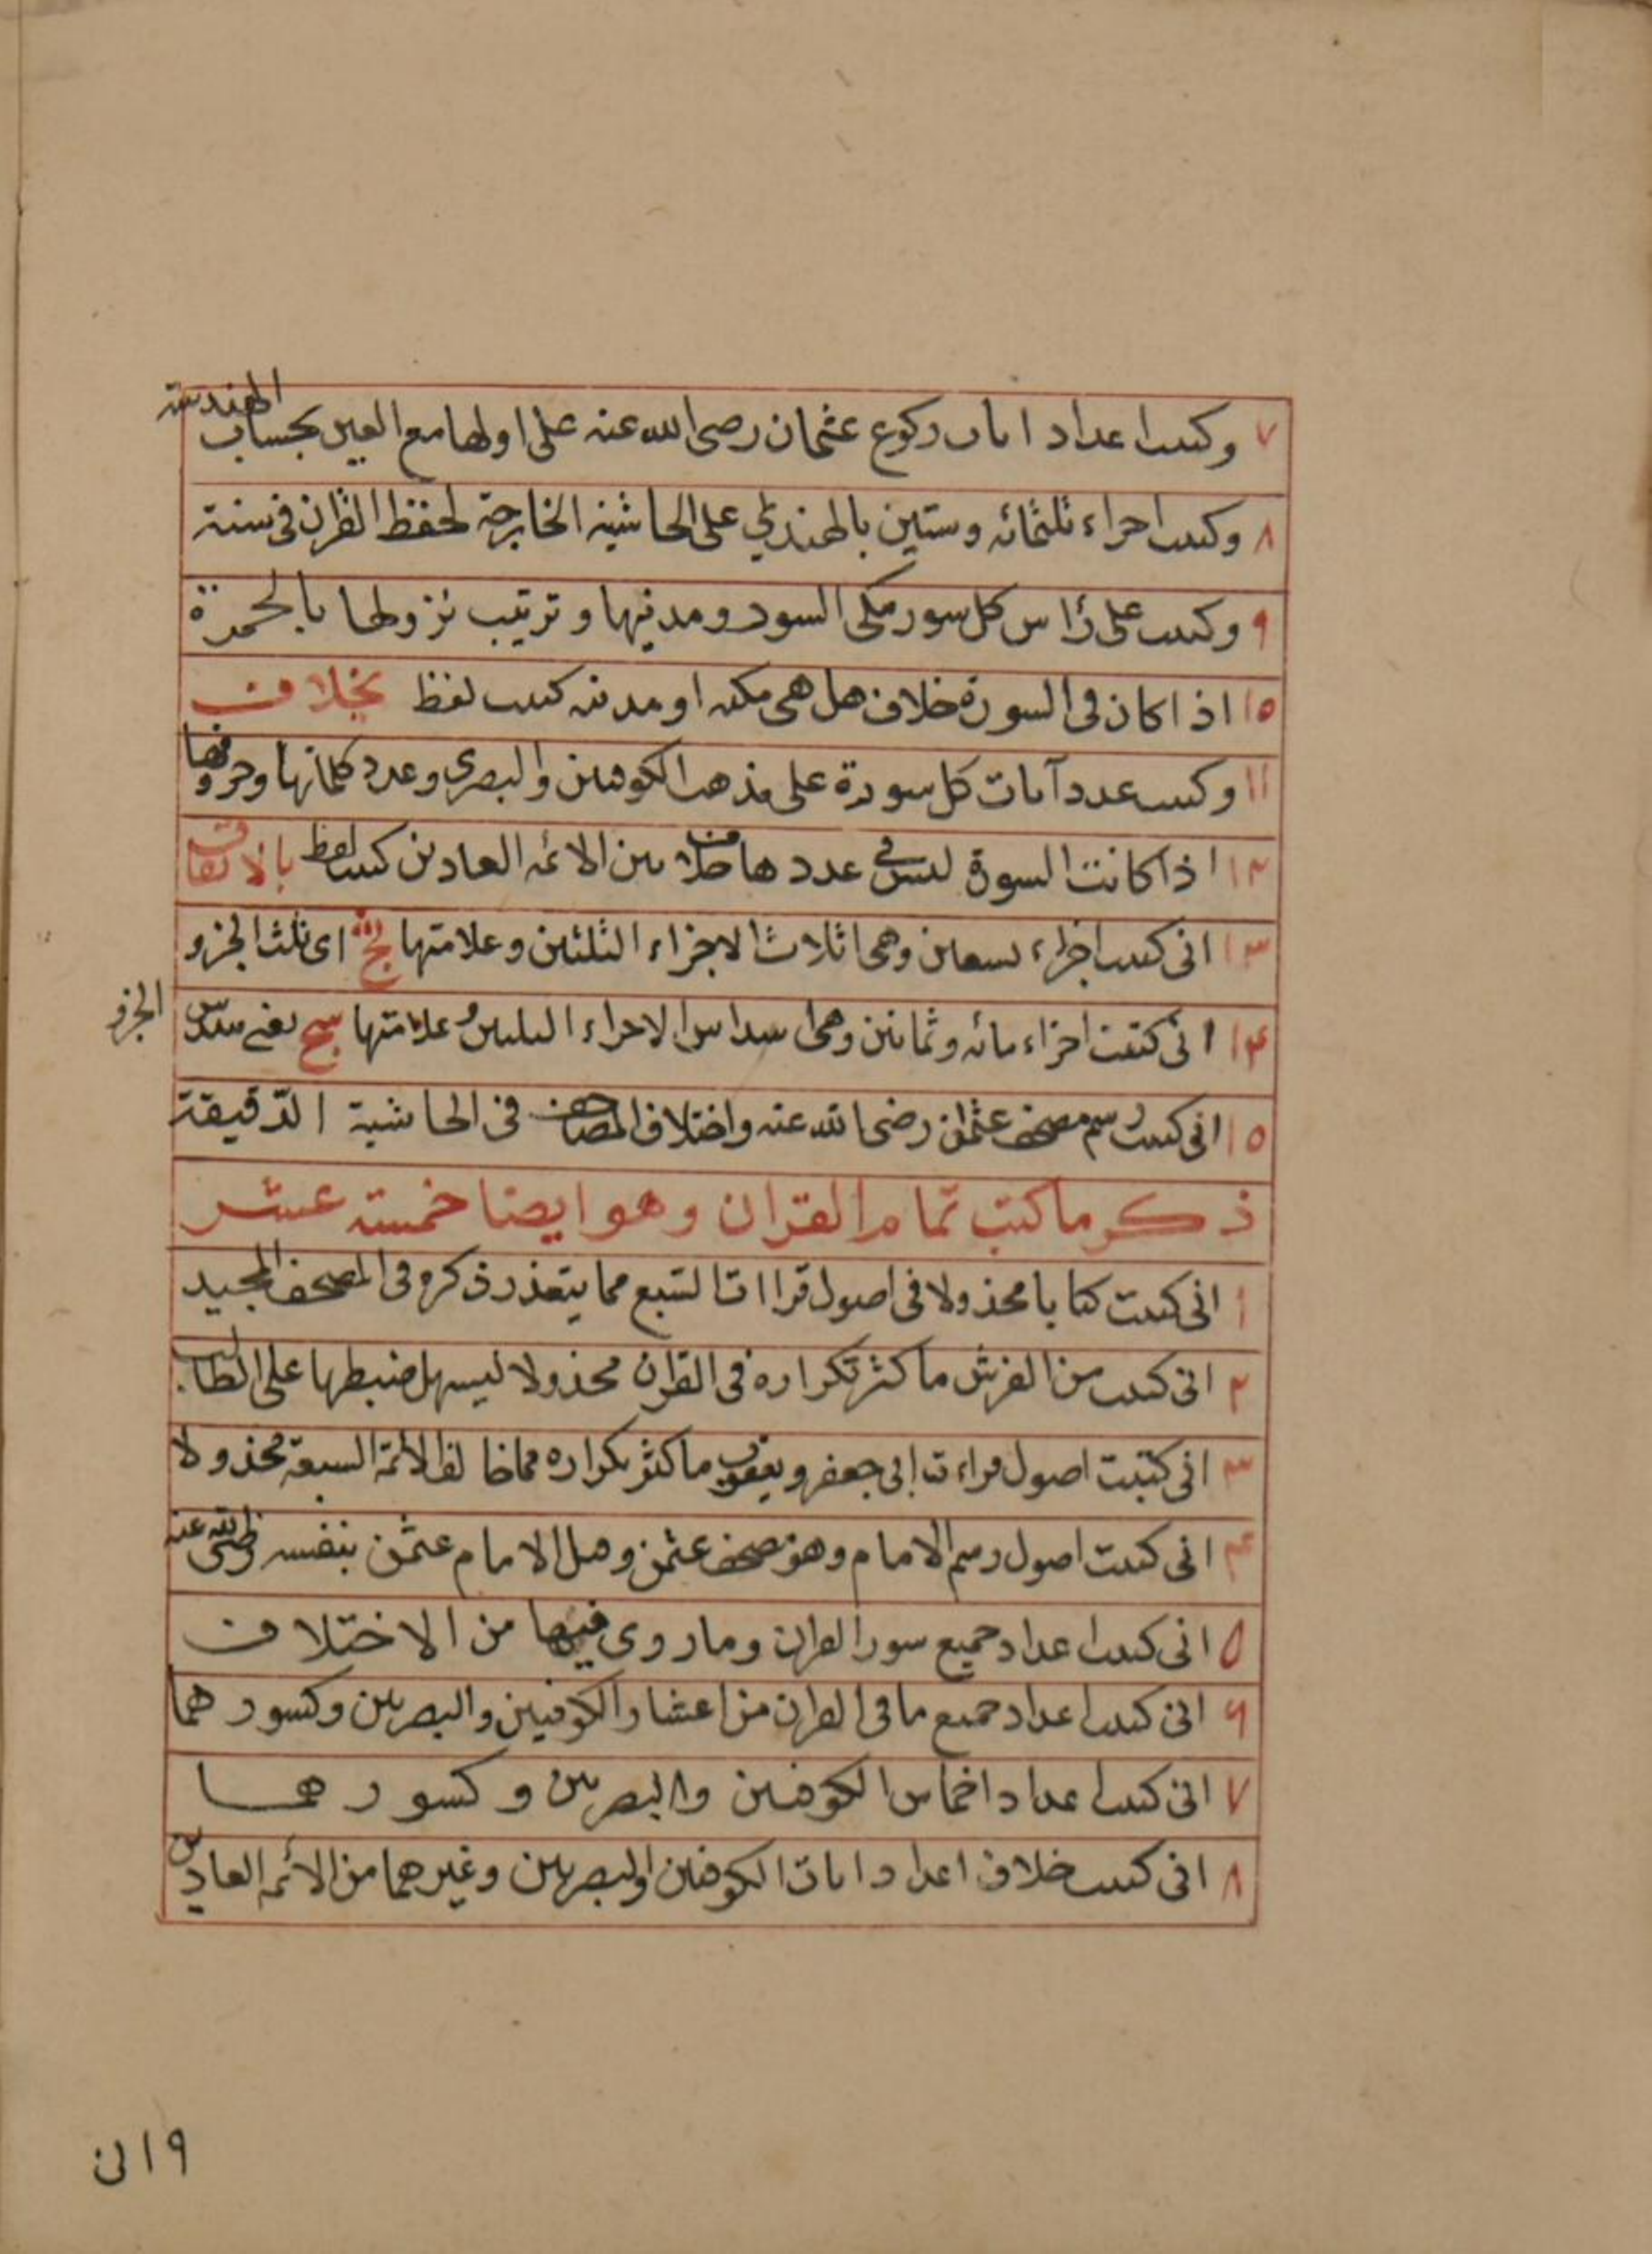 ٧ وكتبت اعداد ايات ركوع عثمان رضى الله عنه على اولها مع العين بحساب الهندسة
٨ وكتبت اجزاء ثلثمائه وستين بالهندسي على الحاشيه الخارجة لحفظ القران فى سنة
٩ وكتبت على رأس كل سور مكى السور ومدنيها وترتيب نزولها بالحمرة
١٥ اذا كان فى السورة خلاف هل هى مكيه او مدنيه كتبت لفظ بخلاف
١١ وكتبت عدد آيات كل سورة على مذهب الكوفيين والبصرى وعدد كلماتها وحروفها
١٢ اذا كانت السورة ليس فى عددها خلاف بين الائمه العادين كتبت لفظ بالاتفاق
١٣ انى كتبت اجزاء تسعين وهى اثلاث الاجزاء الثلثين وعلامتها ثج اى ثلث الجزو
١٤ انى كتبت اجزاء مائه وثمانين وهى اسداس الاجزاء الثلثين وعلامتها سج يعنى سدس الجزو
١٥ انى كتبت رسم مصحف عثمان رضى الله عنه واختلاف المصاحف فى الحاشية الدقيقة
ذكر ما كتب تمام القران وهو ايضا خمسة عشر
١ انى كتبت كتابا مجذولا فى اصول قراات السبع مما يتعذر ذكره فى المصحف المجيد
٢ انى كتبت من الفرش ما كثر تكراره فى القران مجذولا ليسهل ضبطها على الطالب
٣ انى كتبت اصول قراءت ابى جعفر ويعقوب ما كثر تكراره مما خالف الائمة السبعة مجذولا
٤ انى كتبت اصول رسم الامام وهو مصحف عثمن وهل الامام عثمن بنفسه رضى الله عنه
٥ انى كتبت اعداد جميع سور القران وما روى فيها من الاختلاف
٦ انى كتبت اعداد جميع ما فى القران من اعشار الكوفيين والبصريين وكسورهما
٧ انى كتبت اعداد اخماس الكوفيين والبصريين وكسورهما
٨ انى كتبت خلاف اعداد ايات الكوفيين والبصريين وغيرهما من الائمه العادين
٩ انى